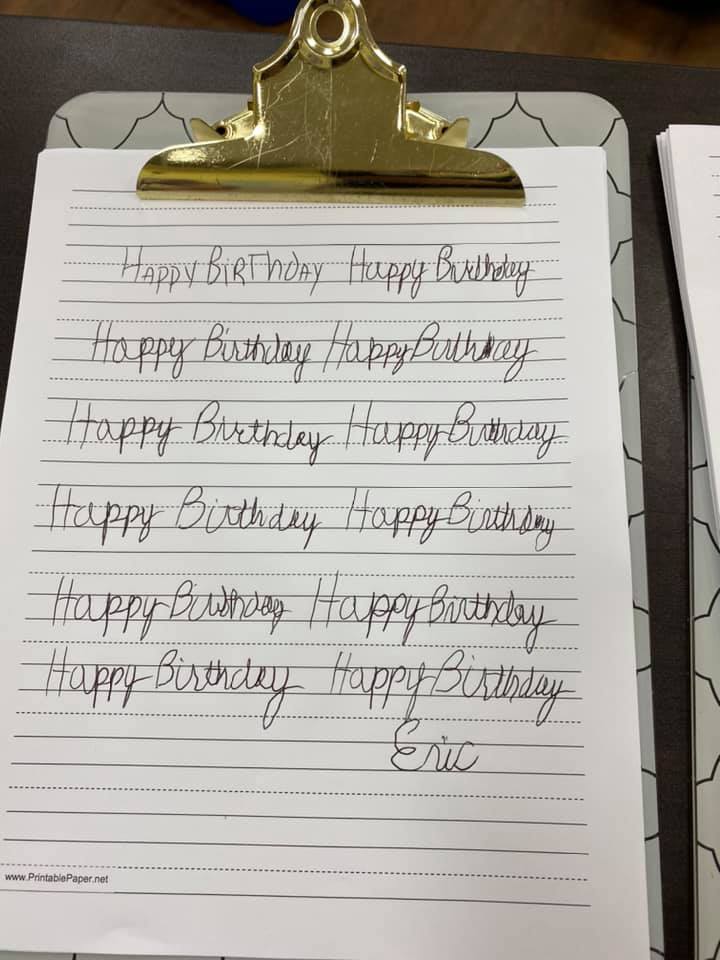 HAPPY BiRThDAY Happy Birthday
Happy Birthday Happy Birthday
Happy Birthday Happy Birthday
Happy Birthday Happy Birthday
Happy Birthday Happy Birthday
Happy Birthday Happy Birthday
Eric
www.PrintablePaper.net